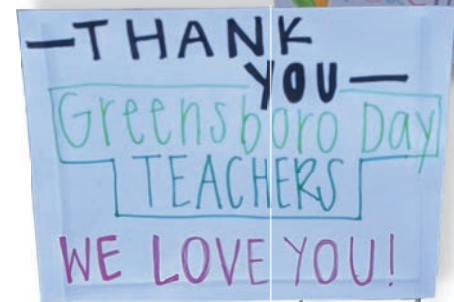 —THANK
YOU—
Greensboro Day
TEACHERS
WE LOVE YOU!